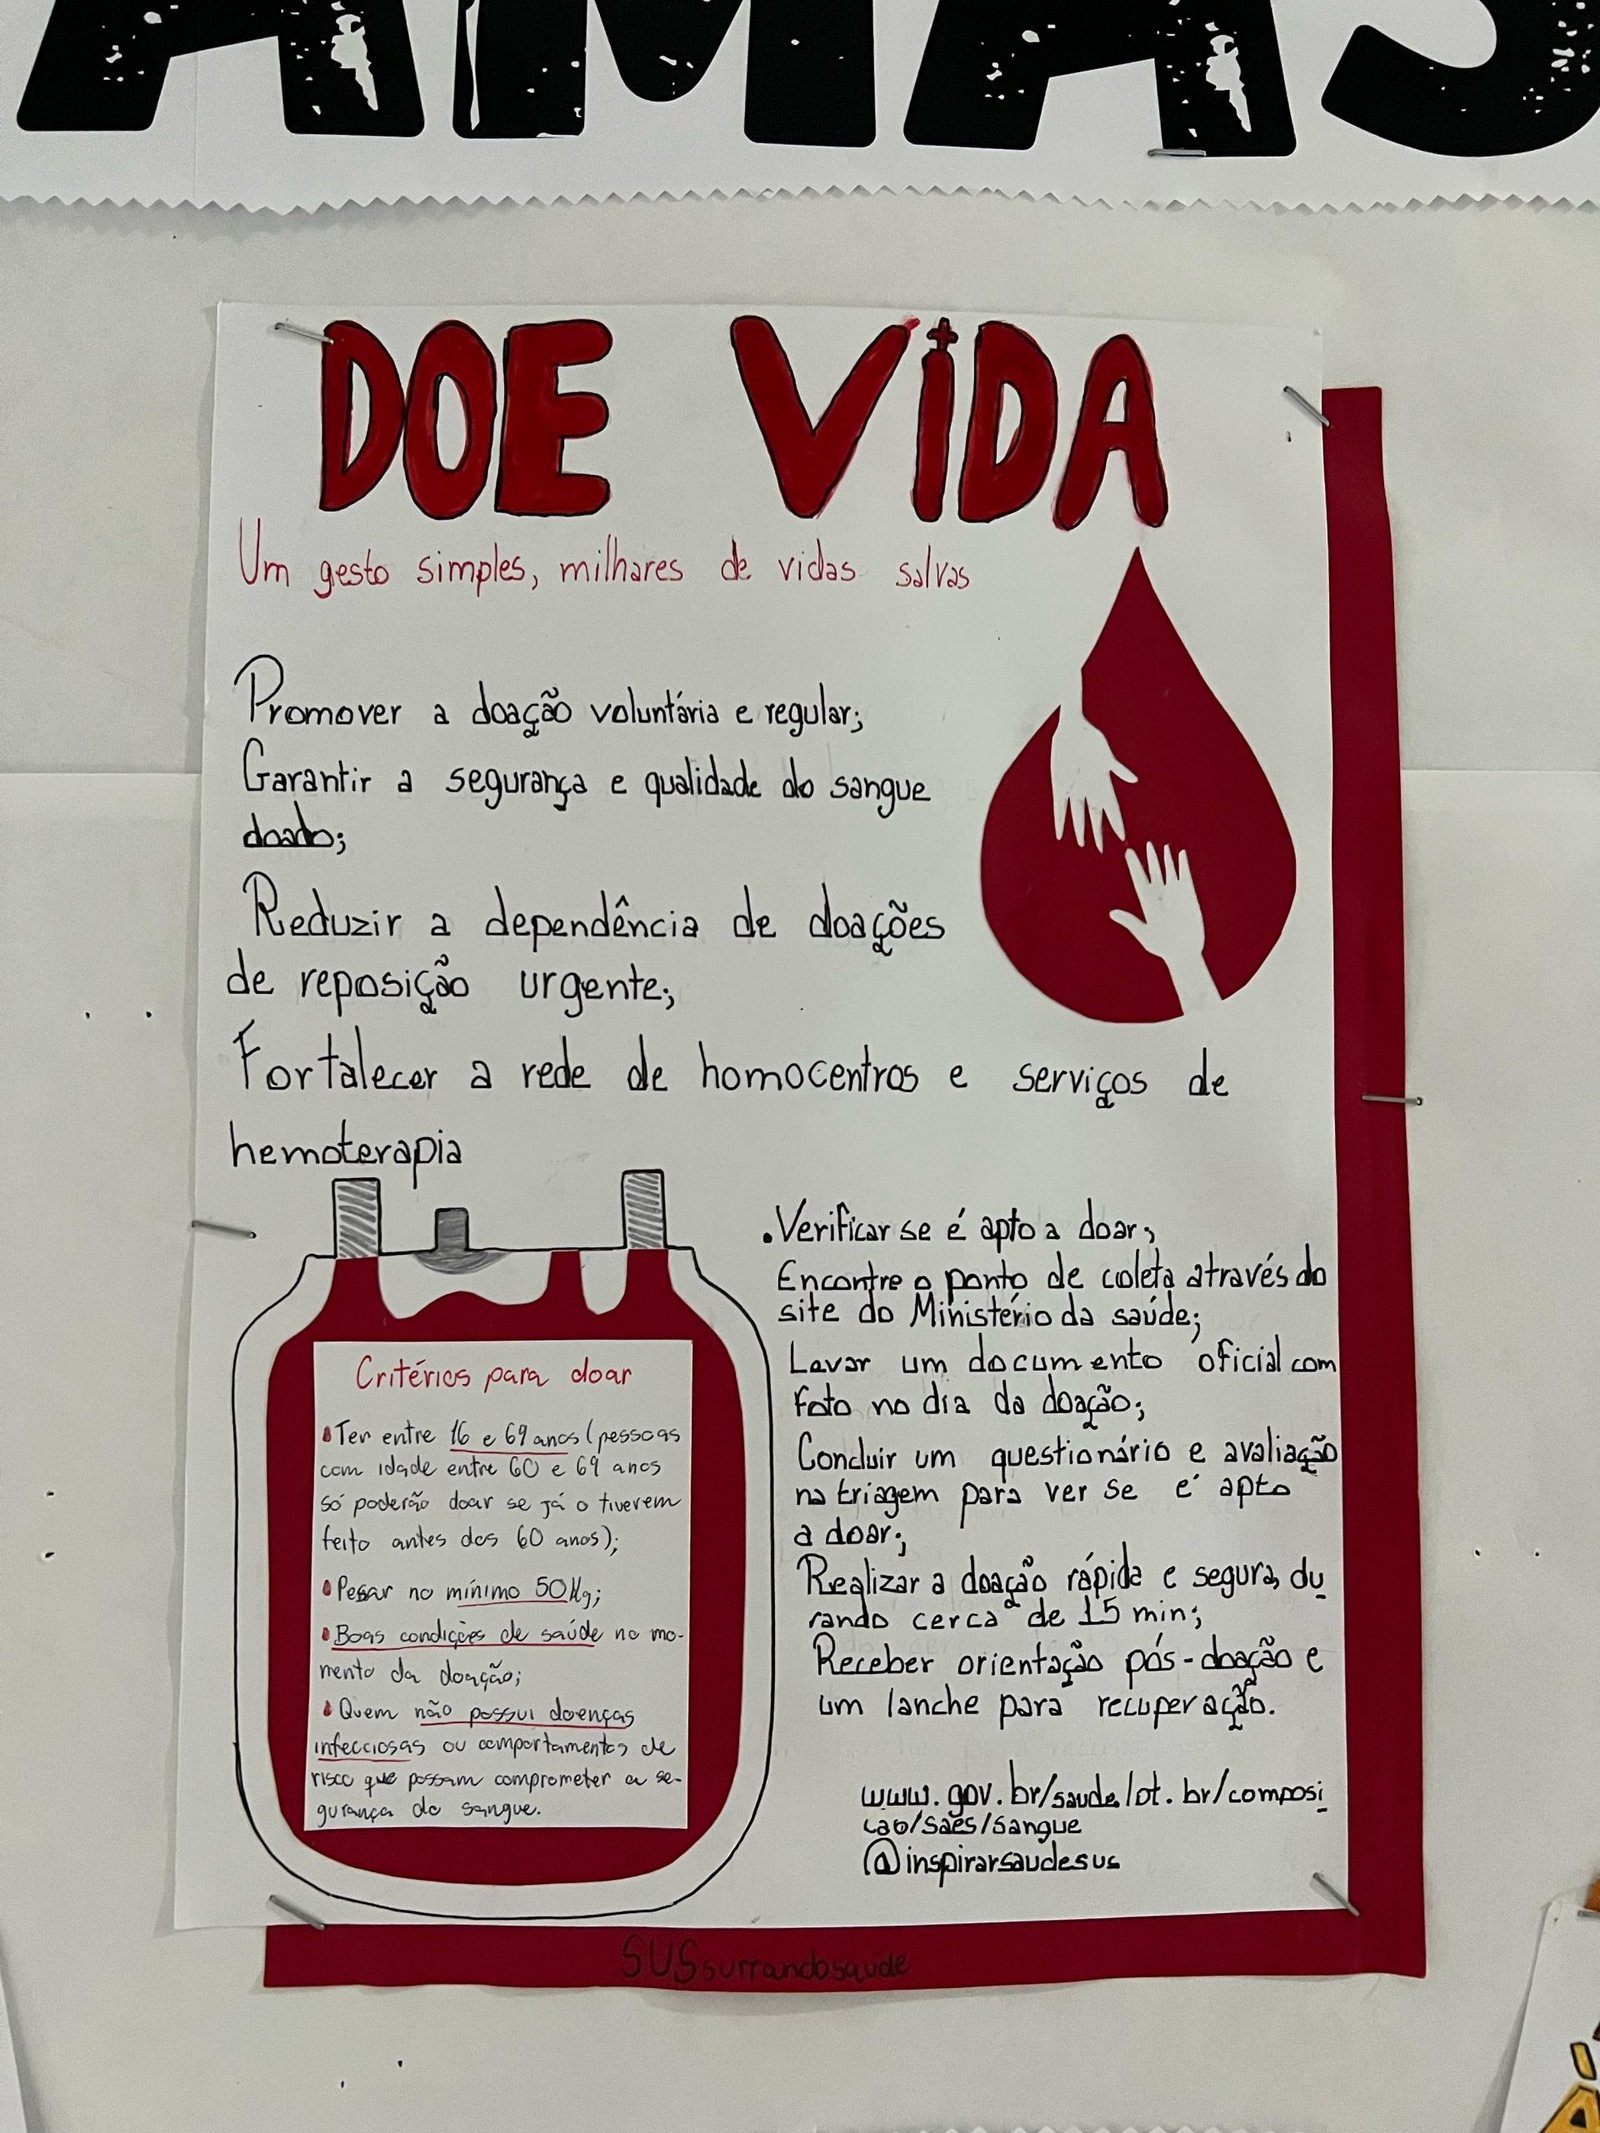 AMAS
DOE VIDA
Um gesto simples, milhares de vidas salvas
Promover a doação voluntária e regular;
Garantir a segurança e qualidade do sangue
doado;
Reduzir a dependência de doações
de reposição urgente;
Fortalecer a rede de homocentros e serviços de
hemoterapia
Critérios para doar
•Ter entre 16 e 69 anos (pessoas
com idade entre 60 e 69 anos
só poderão doar se já o tiverem
feito antes dos 60 anos);
•Pesar no mínimo 50Kg;
•Boas condições de saúde no mo-
mento da doação;
•Quem não possui doenças
infecciosas ou comportamentos de
risco que possam comprometer a se-
gurança do sangue.
.Verificar se é apto a doar;
Encontre o ponto de coleta através do
site do Ministério da saúde;
Levar um documento oficial com
foto no dia da doação;
Concluir um questionário e avaliação
na triagem para ver se é apto
a doar;
Realizar a doação rápida e segura, du
rando cerca de 15 min;
Receber orientação pós-doação e
um lanche para recuperação.
www.gov.br/saude/ot.br/composi
cao/saes/sangue
@inspirarsaudesus
SUSsurrandosaúde